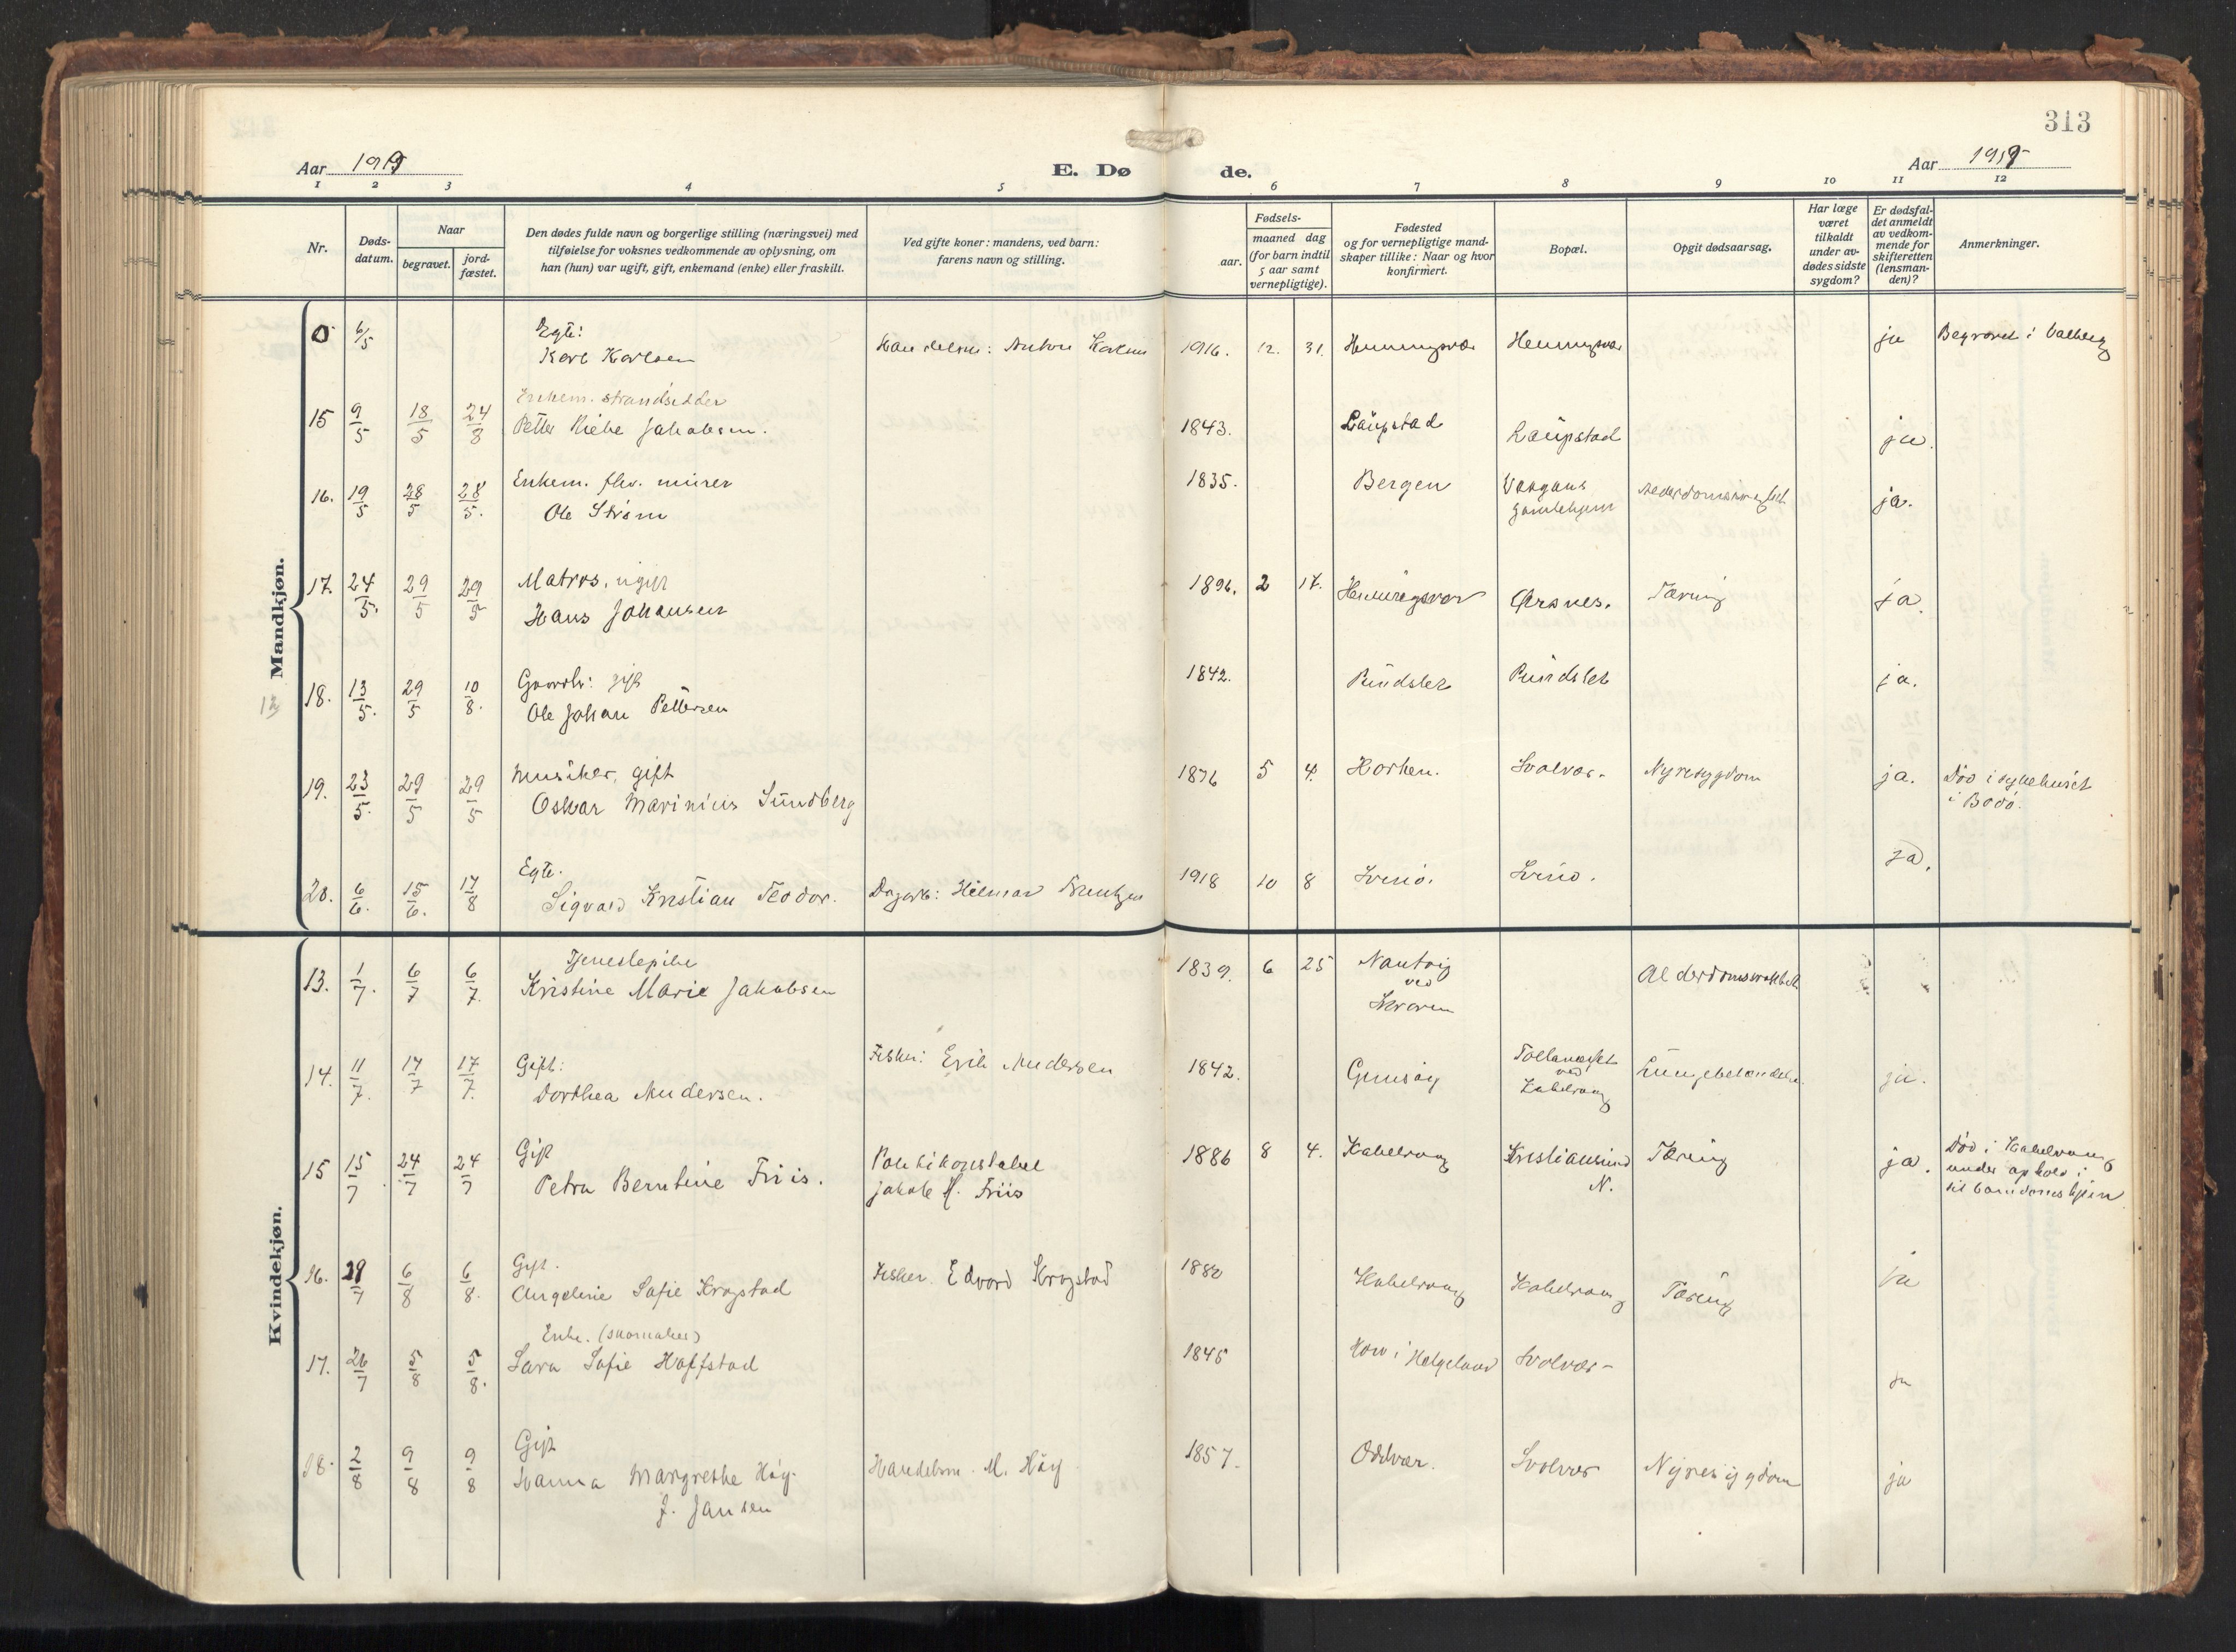 313
Aar 1919
E. Dø
de.
Aar 1919
1 2 3 4 5 6 7 8 9 10 11 12
Nr.
Døds-
datum.
Naar
begravet.
jord-
fæstet.
Den dødes fulde navn og borgerlige stilling (næringsvei) med
tilføielse for voksnes vedkommende av oplysning, om
han (hun) var ugift, gift, enkemand (enke) eller fraskilt.
Ved gifte koner: mandens, ved barn:
farens navn og stilling.
Fødsels-
aar.
maaned dag
(for barn indtil
5 aar samt
vernepligtige).
Fødested
og for vernepligtige mand-
skaper tillike: Naar og hvor
konfirmert.
Bopæl.
Opgit dødsaarsag.
Har læge
været
tilkaldt
under av-
dødes sidste
sygdom?
Er dødsfal-
det anmeldt
av vedkom-
mende for
skifteretten
(lensman-
den)?
Anmerkninger.
Mandkjøn.
0 6/5 Egte:
Karl Karlsen
Handelsm: Anton Karlsen 1916. 12. 31. Henningsvær Henningsvær ja Begravet i Valberg
15 9/5 18/5 24/8 Enkem. strandsidder
Petter Kiehe Jakobsen. 1843. Laupstad Laupstad ja.
16. 19/5 28/5 28/5. Enkem. fhv. murer
Ole Strøm 1835. Bergen Vaagans
gamlehjem ja.
17. 24/5. 29/5 29/5 Matros, ugift
Hans Johansen 1896. 2 17. Henningsvær Ørsnes. Tæring ja.
18. 13/5. 29/5 10/8. Gaardbr: gift
Ole Johan Pettersen 1842. Pundslet Pundslet ja.
19. 23/5. 29/5 29/5 Musiker, gift
Oskar Marinius Sundberg 1876 5 4. Horken. Svolvær. Nyresygdom ja. Død i sykehuset
i Bodø.
20. 6/6. 15/6. 17/8 Egte.
Sigvard Kristian Teodor. Dagarb: Hilmar 1918 10 8 ja.
Kvindekjøn.
13. 1/7. 6/7 6/7. Tjenestepike
Kristine Marie Jakobsen 1839. 6 25 Nautvig
ved
Skroven Alderdomssvakhet
14. 11/7. 17/7 17/7. Gift:
Dorthea Andersen. Fisker: Erik Andersen 1842. Gimsøy
ved
Kabelvaag Lungebetændelse. ja.
15 15/7. 24/7 24/7 Gift
Petra Berntine Friis. Politikonstabel
Jakob H. Friis 1886 8 4. Kabelvaag Kristiansund
N. Tæring ja. Død i Kabelvaag
under ophold i
sit barndomshjem
16. 29/7 6/8 6/8. Gift.
Angeline Sofie Kragstad Fisker. Edvard Kragstad 1880 Kabelvaag Kabelvaag Tæring ja
17. 26/7 5/8 5/8. Enke. (skomaker)
Sara Sofie Hoffstad 1845 Helgeland Svolvær - ja
18. 2/8 9/8 9/8 Gift
Hanna Margrethe Høy.
f. Jansen Handelsm. M. Høy 1857. Oddvær. Svolvær Nyresygdom ja